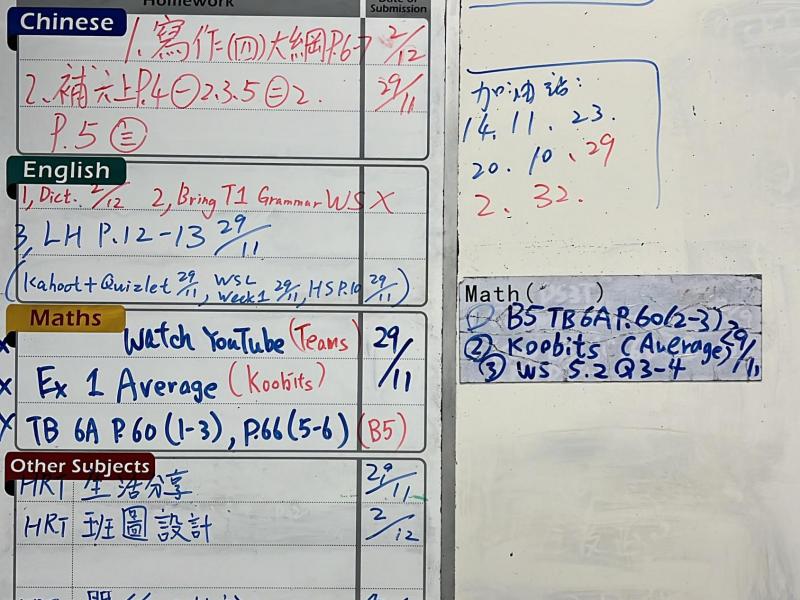 Homework
Date of Submission
Chinese
1. 寫作(四)大綱P.6-7 2/12
2. 補六上P.4㊀2.3.5㊁2. 29/11
P.5 ㊂
English
1, Dict. 2/12 2, Bring T1 Grammar WS X
3, LH P.12-13 29/11
(Kahoot+Quizlet 29/11, WSL Week1 29/11, HS P.10 29/11)
Maths
x Watch YouTube (Teams) 29/11
x Ex 1 Average (Koobits)
x TB 6A P.60(1-3), P.66(5-6) (B5)
Other Subjects
HRT 生活分享 29/11
HRT 班圖設計 2/12
加油站:
14. 11. 23.
20. 10、29
2. 32.
Math( )
① B5 TB 6A P.60(2-3)
② Koobits (Average) 29/11
③ WS 5.2 Q3-4